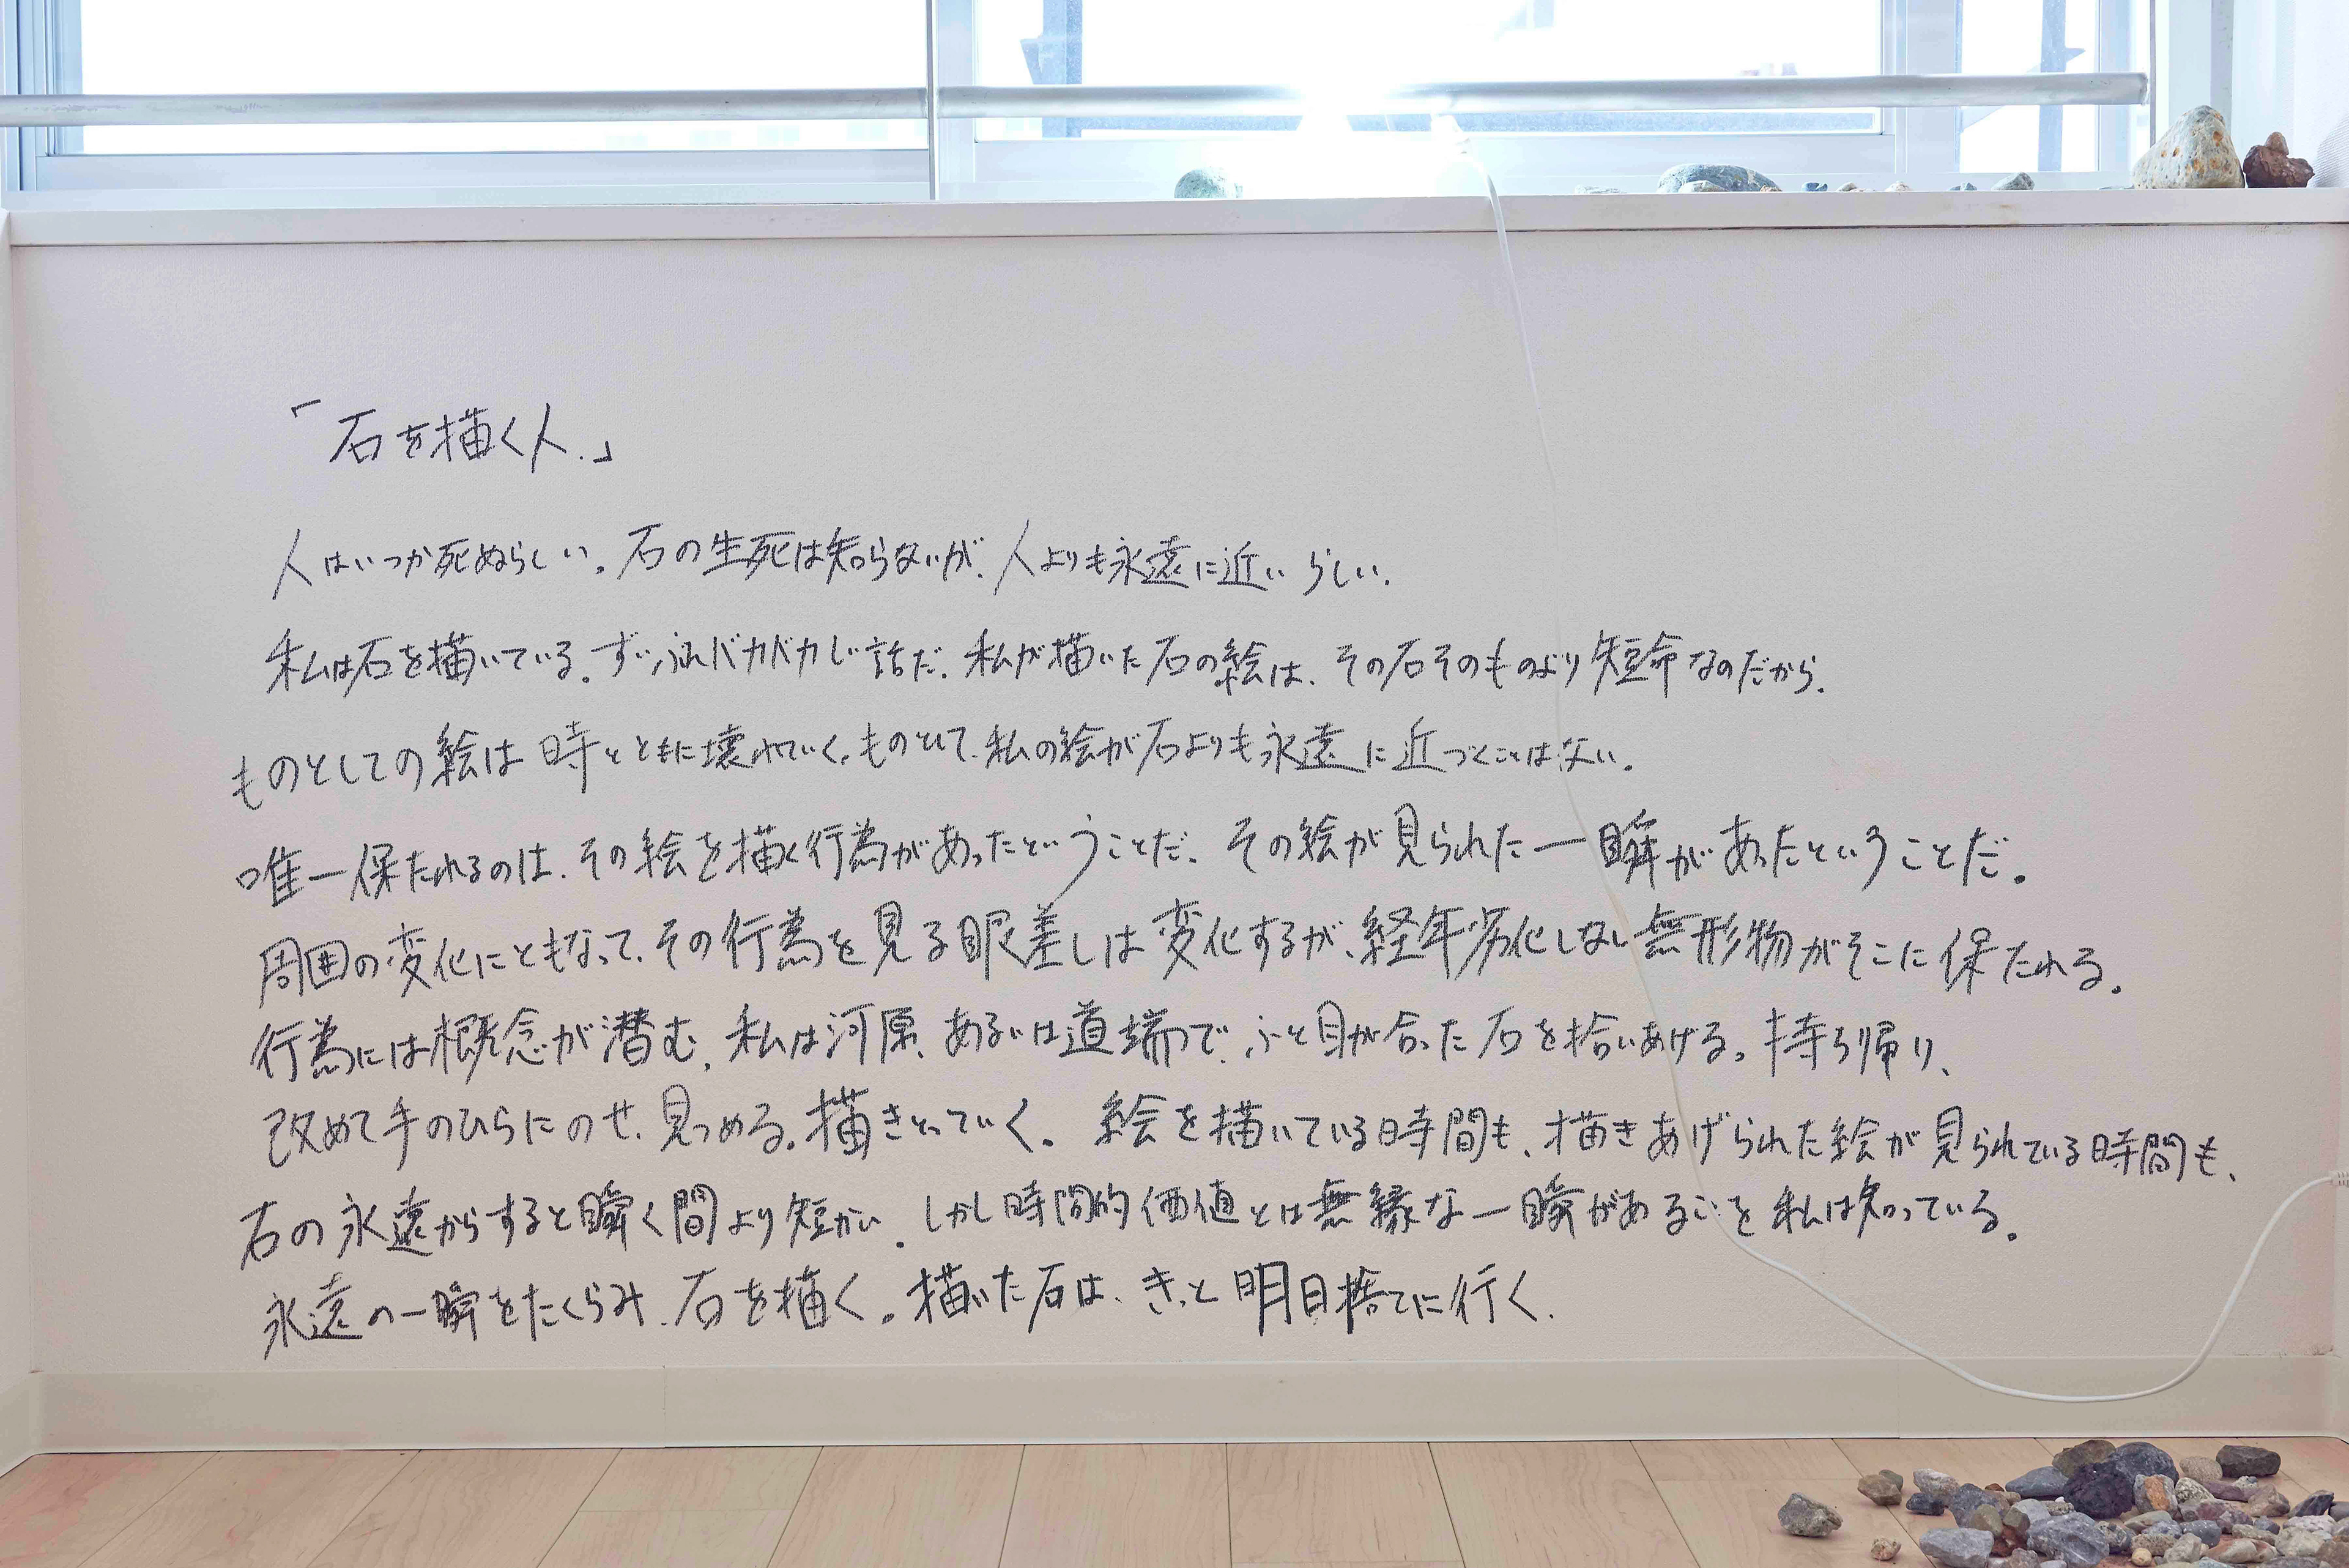 「石を描く人.」
人はいつか死ぬらしい。石の生死は知らないが、人よりも永遠に近いらしい.
私は石を描いている。ずいぶんバカバカしい話だ.私が描いた石の絵は、その石そのものより短命なのだから.
ものとしての絵は時とともに壊れていく。ものとして、私の絵が石よりも永遠に近づくことはない。
唯一保たれるのは、その絵を描く行為があったということだ、その絵が見られた一瞬があったということだ。
周囲の変化にともなって、その行為を見る眼差しは変化するが、経年劣化しない無形物がそこに保たれる。
行為には概念が潜む、私は河原、あるいは道端で、ふと目が合った石を拾いあげる。持ち帰り、
改めて手のひらにのせ、見つめる。描きとっていく。絵を描いている時間も、描きあげられた絵が見られている時間も、
石の永遠からすると瞬く間より短かい.しかし時間的価値とは無縁な一瞬があることを私は知っている。
永遠の一瞬をたくらみ、石を描く。描いた石は、きっと明日捨てに行く.